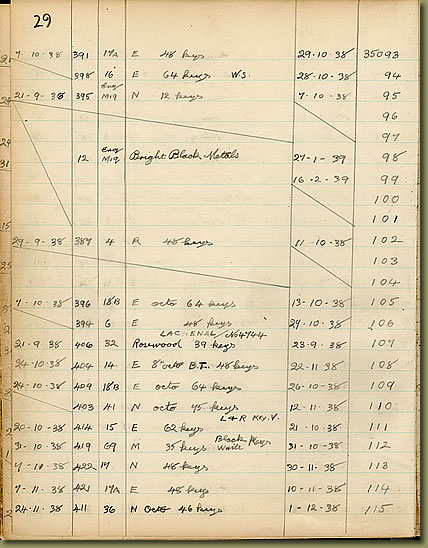 29
7-10-38 391 17A E 48 keys 29-10-38 35093
398 16 E 64 keys W.S. 28-10-38 94
21-9-38 395 Eng Mig N 12 keys 7-10-38 95
96
97
12 Eng Mig Bright Black Metals 27-1-39 98
16-2-39 99
100
101
29-9-38 387 4 R 48 keys 11-10-38 102
103
104
7-10-38 396 18B E octo 64 keys 13-10-38 105
394 6 E 48 keys 106
LACHENAL No 4744
21-9-38 406 32 Rosewood 39 keys 23-9-38 107
24-10-38 404 14 E 8" octo B.T. 48 keys 22-11-38 108
24-10-38 409 18B E octo 64 keys 26-10-38 109
403 41 N octo 45 keys 12-11-38 110
L & R Key.V.
20-10-38 414 15 E 62 keys 21-10-38 111
31-10-38 419 69 M 35 keys Black Keys White 31-10-38 112
422 17 N 48 keys 30-11-38 113
7-11-38 421 17A E 48 keys 10-11-38 114
24-11-38 411 36 N Octo 46 keys 1-12-38 115